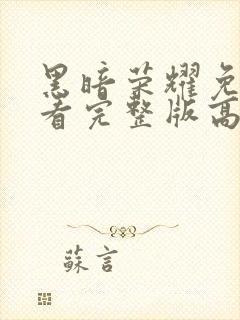 黑暗荣耀免
看完整版高
蘇言